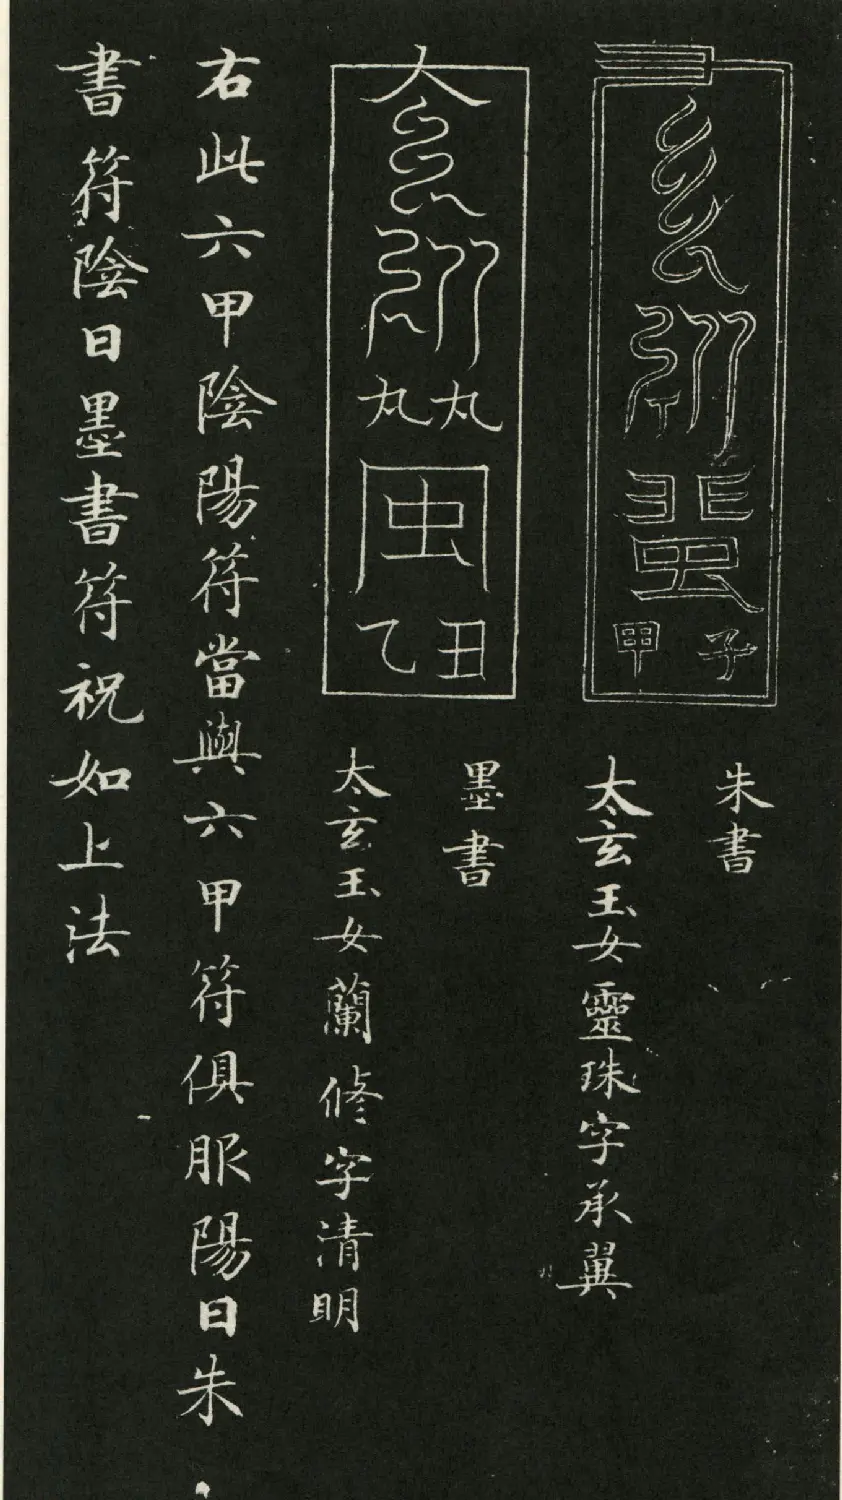 甲子
朱書
太玄玉女靈珠字承翼
丸丸
虫
乙丑
墨書
太玄玉女蘭脩字清明
右此六甲陰陽符當與六甲符俱服陽日朱
書符陰日墨書符祝如上法